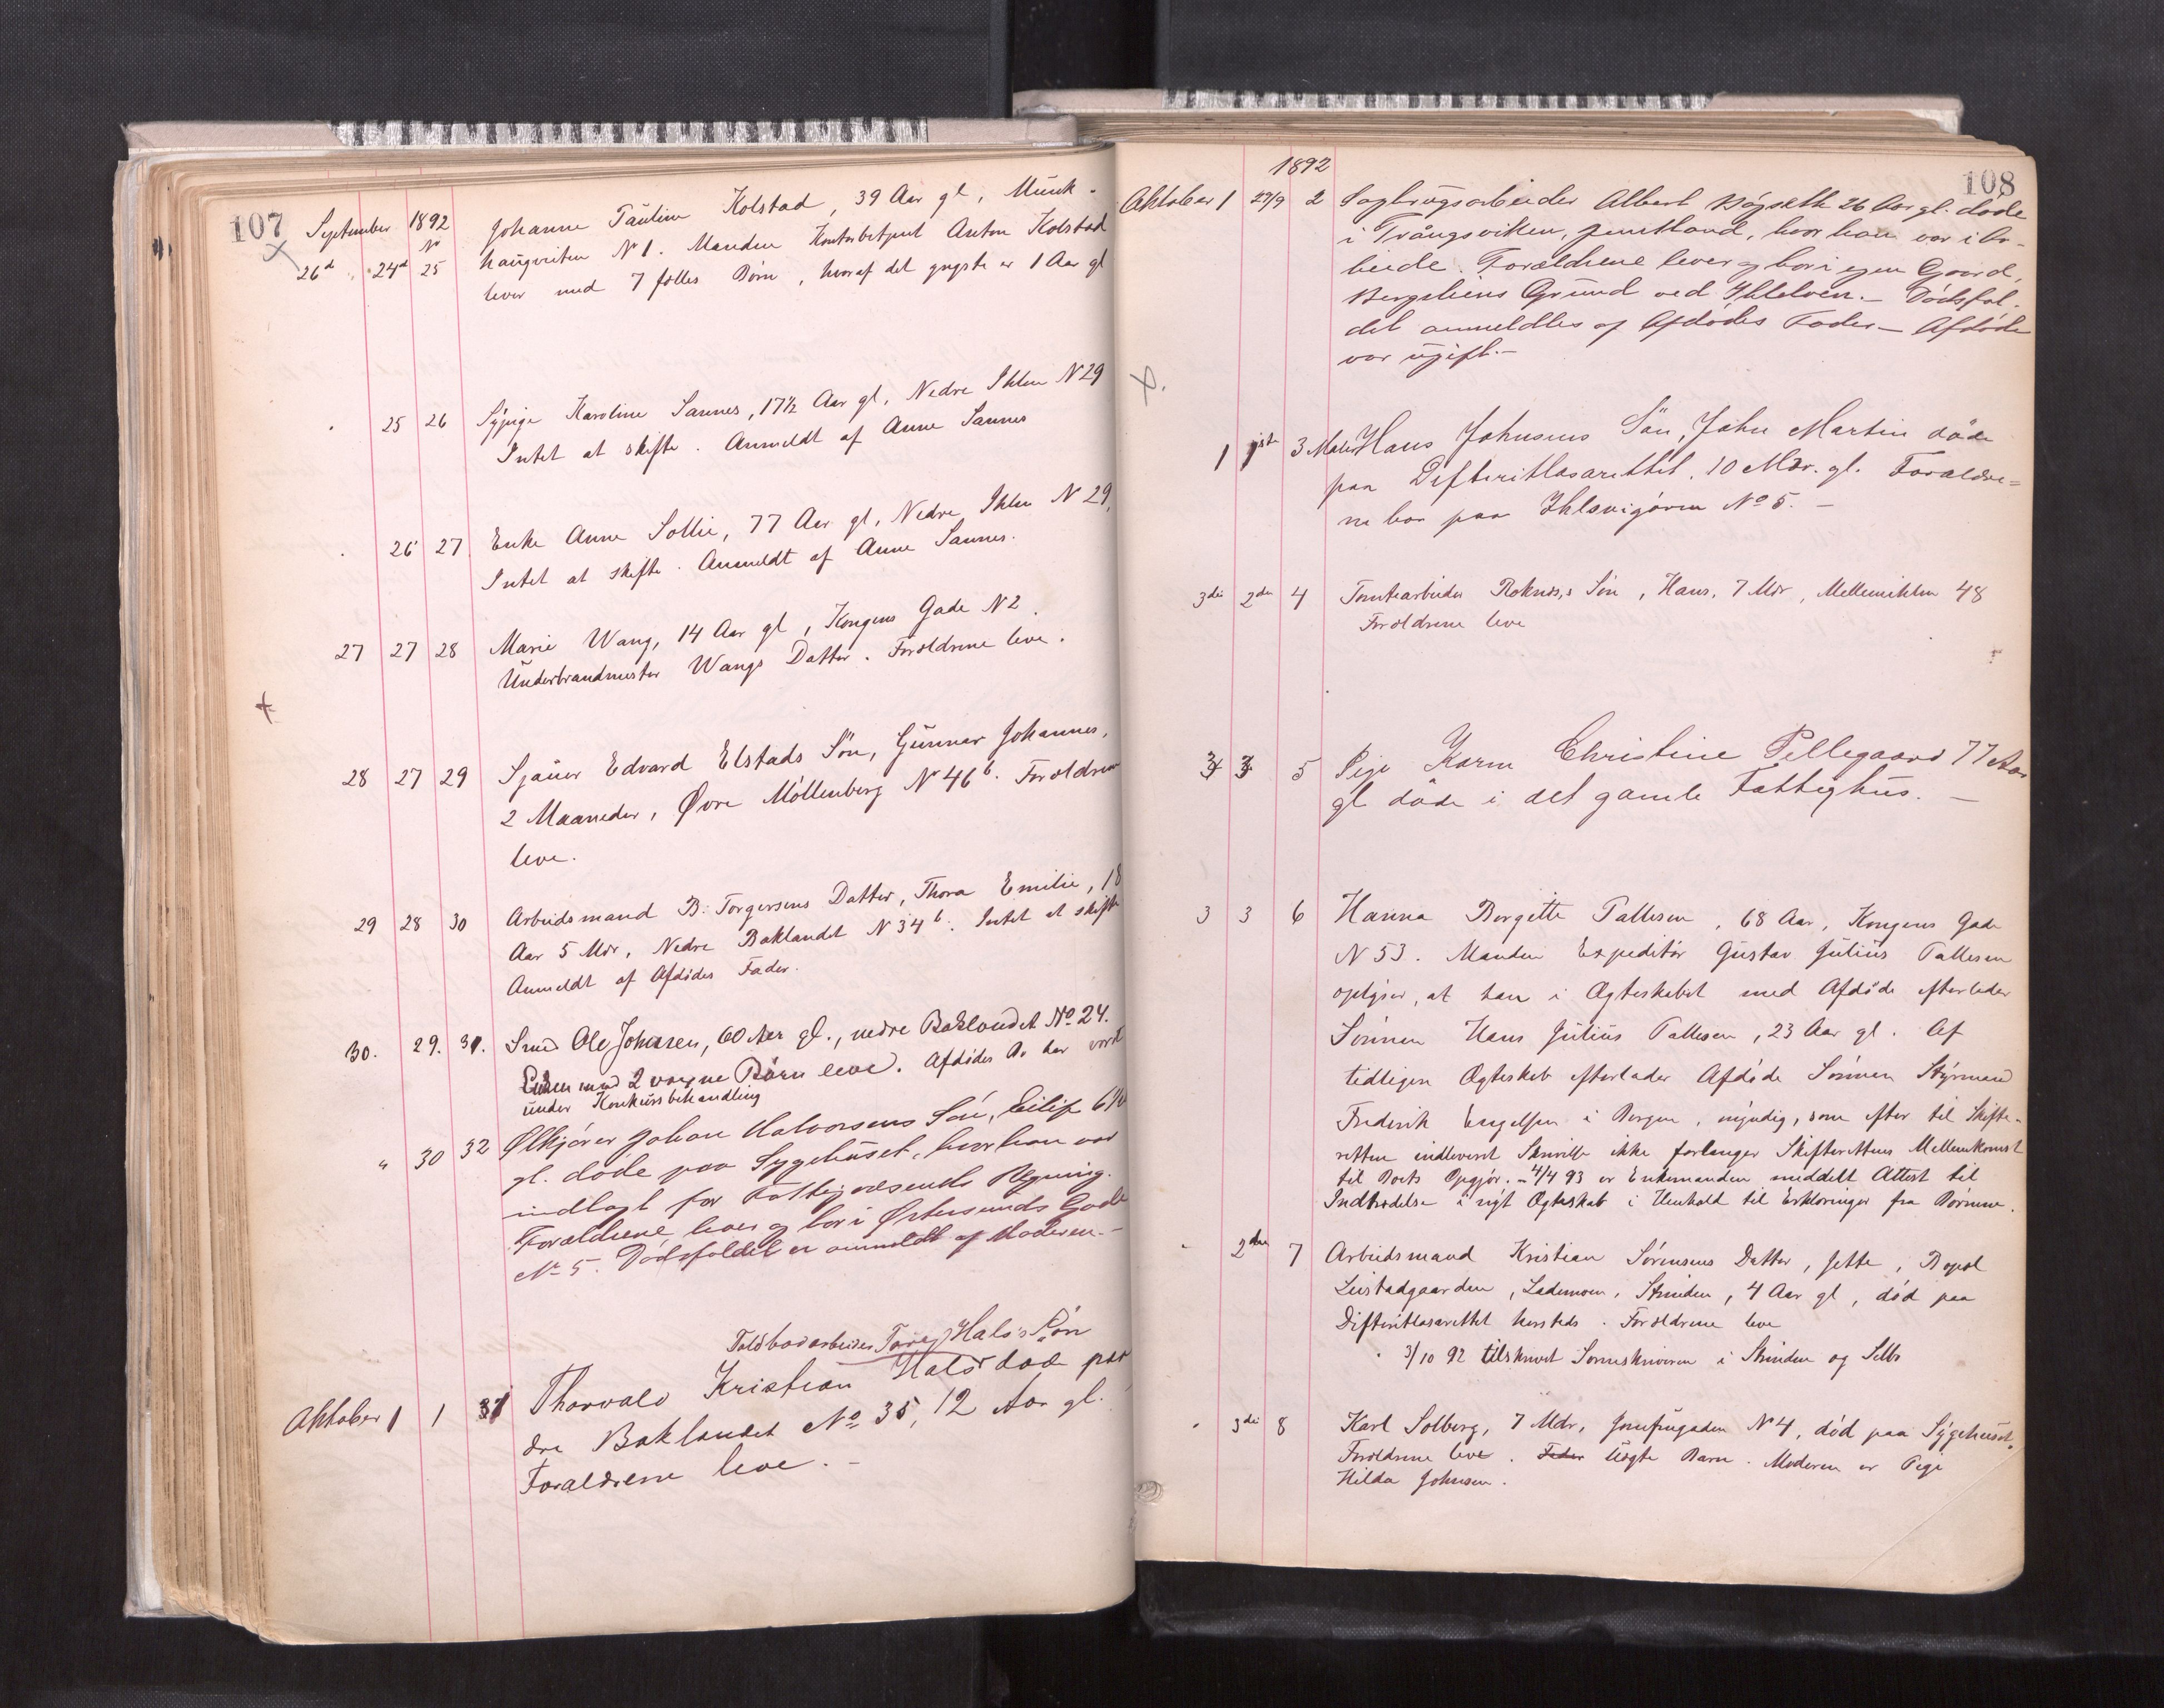 107
September 1892
26d 24d No 25 Johanne Pauline Kolstad, 39 Aar gl, Munk-
haugveiten N 1. Manden Kontorbetjent Anton Kolstad
lever med 7 fælles Børn, hvoraf det yngste er 1 Aar gl
25 26 Sypige Karoline Sannes, 17½ Aar gl, Nedre Ihlen N 29
Intet at skifte. Anmeldt af Anne Sannes
26 27 Enke Anne Sollie, 77 Aar gl, Nedre Ihlen N 29,
Intet at skifte. Anmeldt af Anne Sannes.
27 27 28 Marie Wang, 14 Aar gl, Kongens Gade N 2.
Underbrandmester Wangs Datter. Forældrene leve.
28 27 29 Sjauer Edvard Elstads Søn, Gunnar Johannes,
2 Maaneder, Øvre Møllenberg No 46b. Forældrene
leve.
29 28 30 Arbeidsmand B. Torgersens Datter, Thora Emilie, 18
Aar 5 Mdr, Nedre Baklandet N 34b. Intet at skifte
Anmeldt af Afdødes Fader.
30. 29. 31. Smed Ole Johnsen, 60 Aar gl., nedre Baklandet No. 24.
Enken med 2 voxne Børn leve. Afdødes Bo har vært
under Konkursbehandling
" 30 32 Ølkjører Johan Halvorsens Søn, Eilif
gl. døde paa Sygehuset, hvor han var
indlagt for Fattigvæsenets Regning.
Forældrene lever og bor i Østersunds Gade
No 5. Dødsfaldet er anmeldt af Moderen.-
Toldbodarbeider Hals's Søn
Oktober 1 1 1 Thorvald Kristian Hals døde paa
dre Baklandet No 35, 12 Aar gl.
Forældrene leve.-
108
1892
Oktober 1 29/9 2 Sagbrugsarbeider Albert Bøjseth 26 Aar gl. døde
i Trångsviken, Jemtland, hvor han var i Ar-
beide. Forældrene lever og bor i egen Gaard,
Bergsliens Grund ved Ihlelven.- Dødsfal-
det anmeldtes af Afdødes Fader - Afdøde
var ugift.-
1 1ste 3 Maler Hans Johnsens Søn, John Martin døde
paa Difteritlasarettet, 10 Mdr. gl. Forældre=
ne bor paa Ihlsvigøren No 5.-
3die 2den 4 Tomtearbeider Roknæs,s Søn, Hans, 7 Mdr, Mellemihlen 48
Forældrene leve
3 3 5 Pige Karen Christine Pellegaard 77 Aar
gl døde i det gamle Fattighus.-
3 3 6 Hanna Bergitte Pallesen, 68 Aar, Kongens Gade
N 53. Manden Expeditør Gustav Julius Pallesen
oplyser, at han i Ægteskabet med Afdøde efterlader
Sønnen Hans Julius Pallesen, 23 Aar gl. Af
tidligere Ægteskab efterlader Afdøde Sønnen Styrmand
Frederik Engelsen i Bergen, myndig, som efter til Skifte-
retten indleveret Skrivelse ikke forlanger Skifterettens Mellemkomst
til Boets Opgjør. - 4/4 93 er Enkemanden meddelt Attest til
Indtrædelse i nyt Ægteskab i Henhold til Erklæringer fra Børnene.
- 2den 7 Arbeidsmand Kristian Sørensens Datter, Jette, Bopæl
Leistadgaarden, Lademoen, Strinden, 4 Aar gl, død paa
Difteritlasarettet hersteds. Forældrene leve
3/10 92 tilskrevet Sorenskriveren i Strinden og Selbu
- 3die 8 Karl Solberg, 7 Mdr, Jomfrugaden N 4, død paa Sygehuset.
Forældrene leve. Fader Uægte Barn. Moderen er Pige
Hilda Johnsen.